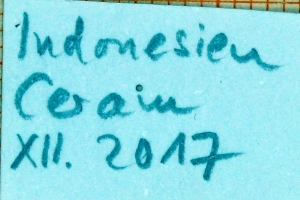 Indonesien
Ceram
XII. 2017